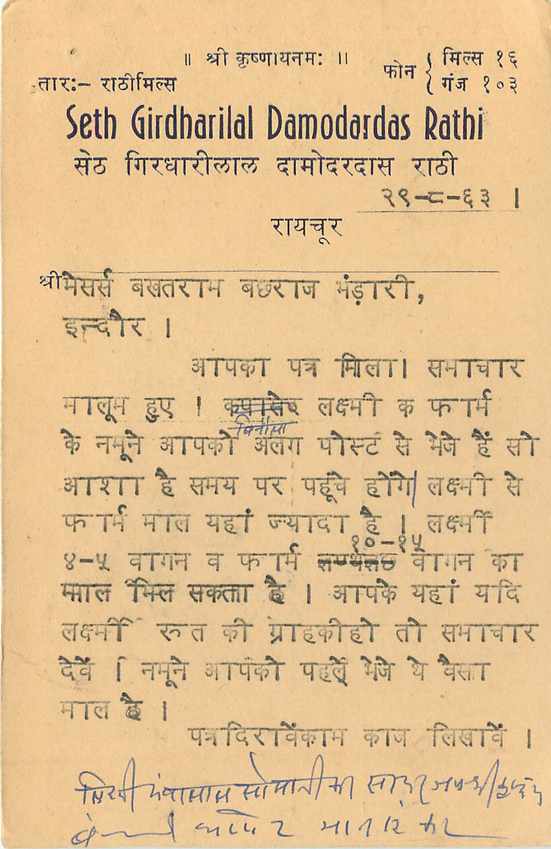 ॥ श्री कृष्णायनमः ॥
तारः– राठीमिल्स
फोन { मिल्स १६
गंज १०३
Seth Girdharilal Damodardas Rathi
सेठ गिरधारीलाल दामोदरदास राठी
२९-८-६३ ।
रायचूर
श्रीमेसर्स बखतराम बछराज भंड़ारी,
इन्दौर ।
आपका पत्र मिला। समाचार
मालूम हुए । लक्ष्मी क फार्म
के नमूने आपको अलग पोस्ट से भेजे हैं सो
आशा है समय पर पहूंचे होंगे। लक्ष्मी से
फार्म माल यहां ज्यादा है । लक्ष्मीं
१०-१५
४-५ वागन व फार्म वागन का
माल मिल सकता है । आपके यहां यदि
लक्ष्मीं रूत की ग्राहकीहो तो समाचार
देवें । नमूने आपको पहलें भेजे थे वैसा
माल है ।
पत्रदिरावेंकाम काज लिखावें ।